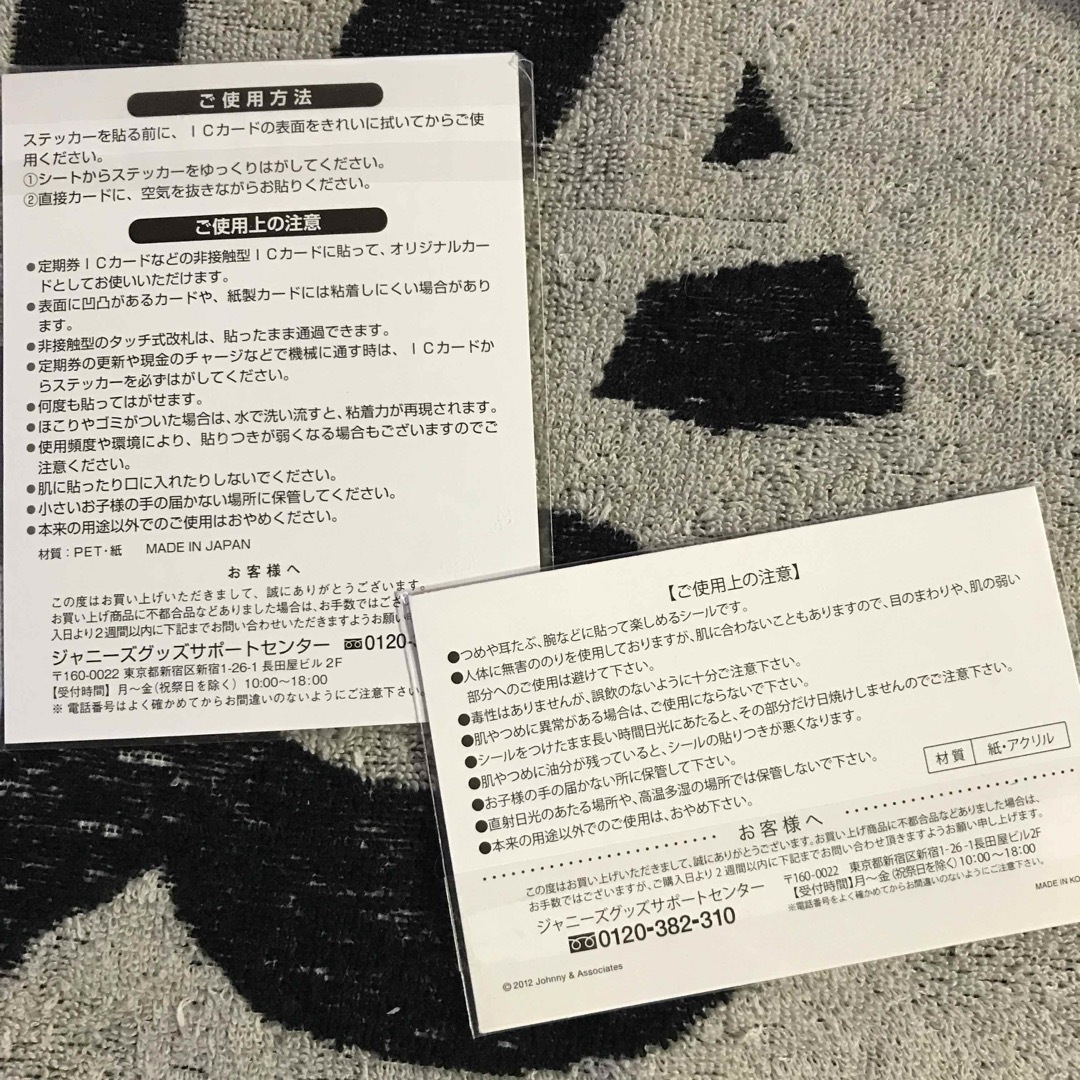 ご使用方法
ステッカーを貼る前に、ICカードの表面をきれいに拭いてからご使
用ください。
①シートからステッカーをゆっくりはがしてください。
②直接カードに、空気を抜きながらお貼りください。
ご使用上の注意
●定期券ICカードなどの非接触型ICカードに貼って、オリジナルカー
ドとしてお使いいただけます。
●表面に凹凸があるカードや、紙製カードには粘着しにくい場合があり
ます。
●非接触型のタッチ式改札は、貼ったまま通過できます。
●定期券の更新や現金のチャージなどで機械に通す時は、ICカードか
らステッカーを必ずはがしてください。
●何度も貼ってはがせます。
●ほこりやゴミがついた場合は、水で洗い流すと、粘着力が再現されます。
●使用頻度や環境により、貼りつきが弱くなる場合もございますのでご
注意ください。
●肌に貼ったり口に入れたりしないでください。
●小さいお子様の手の届かない場所に保管してください。
●本来の用途以外でのご使用はおやめください。
材質：PET・紙 MADE IN JAPAN
お客様へ
この度はお買い上げいただきまして、誠にありがとうございます。
お買い上げ商品に不都合品などありました場合は、お手数ではござ
入日より2週間以内に下記までお問い合わせいただきますようお願い
ジャニーズグッズサポートセンター 0120-
〒160-0022 東京都新宿区新宿1-26-1 長田屋ビル 2F
【受付時間】月〜金(祝祭日を除く) 10:00〜18:00
※ 電話番号はよく確かめてからお間違いのないようにご注意下さい。
【ご使用上の注意】
●つめや耳たぶ、腕などに貼って楽しめるシールです。
●人体に無害ののりを使用しておりますが、肌に合わないこともありますので、目のまわりや、肌の弱い
部分へのご使用は避けて下さい。
●毒性はありませんが、誤飲のないように十分ご注意下さい。
●肌やつめに異常がある場合は、ご使用にならないで下さい。
●シールをつけたまま長い時間日光にあたると、その部分だけ日焼けしませんのでご注意下さい。
●肌やつめに油分が残っていると、シールの貼りつきが悪くなります。
●お子様の手の届かない所に保管して下さい。
●直射日光のあたる場所や、高温多湿の場所では保管しないで下さい。
●本来の用途以外でのご使用は、おやめ下さい。
材質 紙・アクリル
お客様へ
この度はお買い上げいただきまして、誠にありがとうございます。お買い上げ商品に不都合品などありました場合は、
お手数ではございますが、ご購入日より2週間以内に下記までお問い合わせ頂きますようお願い申し上げます。
ジャニーズグッズサポートセンター
0120-382-310
〒160-0022 東京都新宿区新宿1-26-1長田屋ビル2F
【受付時間】月〜金(祝祭日を除く)10:00〜18:00
※電話番号をよく確かめてからお間違いのないようにご注意下さい。
MADE IN KO
© 2012 Johnny & Associates